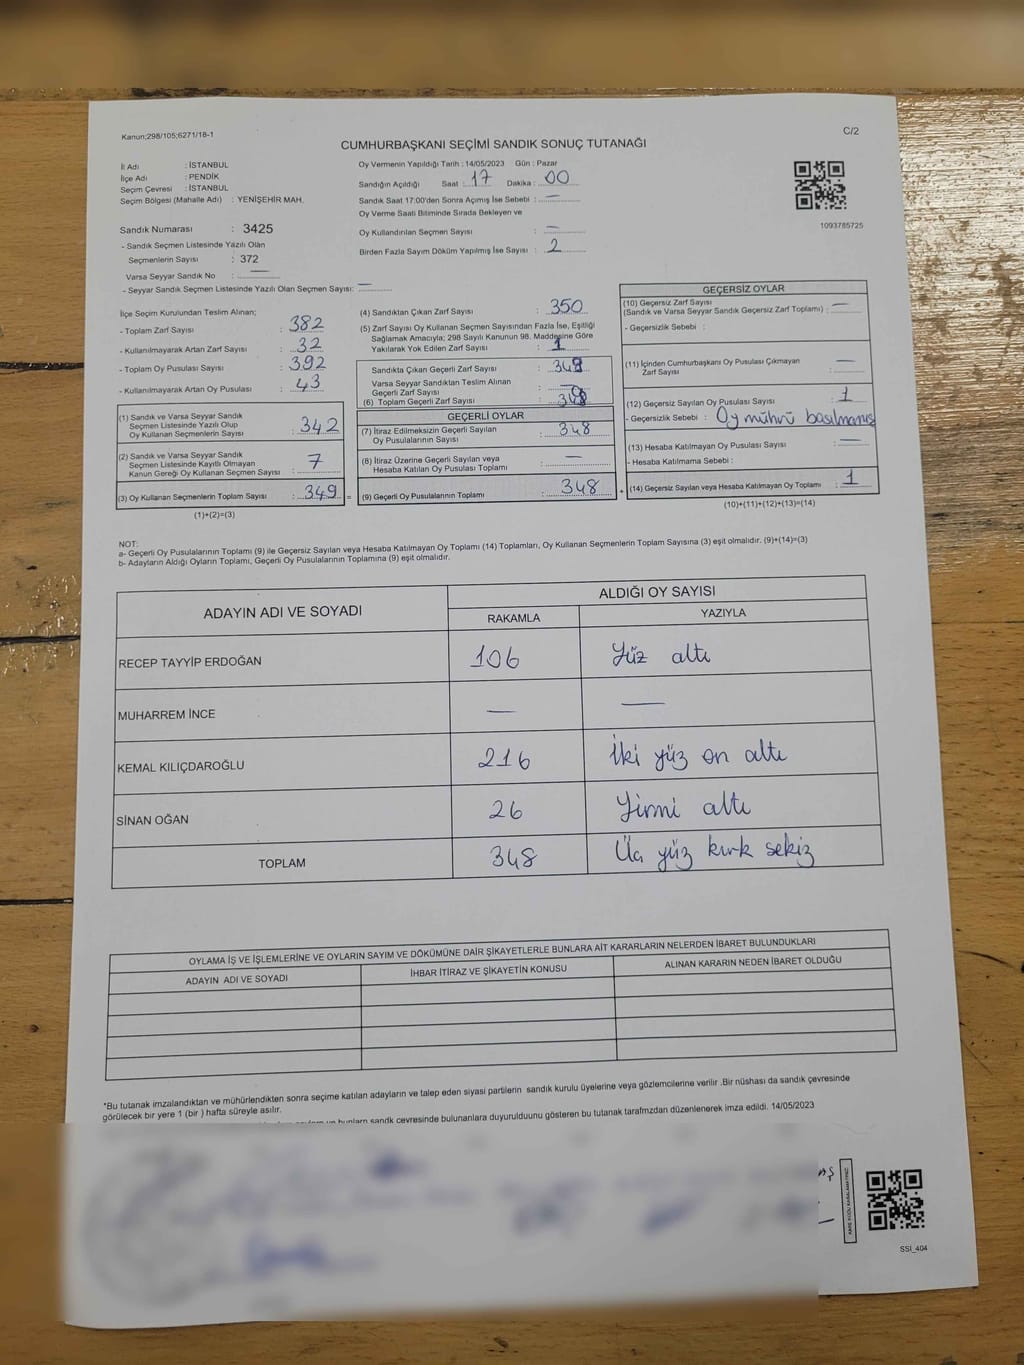 Kanun;298/105;6271/18-1
C/2
CUMHURBAŞKANI SEÇİMİ SANDIK SONUÇ TUTANAĞI
İl Adı : İSTANBUL
İlçe Adı : PENDİK
Seçim Çevresi : İSTANBUL
Seçim Bölgesi (Mahalle Adı) : YENİŞEHİR MAH.
Sandık Numarası : 3425
- Sandık Seçmen Listesinde Yazılı Olan
Seçmenlerin Sayısı : 372
Varsa Seyyar Sandık No : —
- Seyyar Sandık Seçmen Listesinde Yazılı Olan Seçmen Sayısı: —
Oy Vermenin Yapıldığı Tarih : 14/05/2023 Gün : Pazar
Sandığın Açıldığı Saat : 17 Dakika : 00
Sandık Saat 17:00'den Sonra Açımış İse Sebebi : —
Oy Verme Saati Bitiminde Sırada Bekleyen ve
Oy Kullandırılan Seçmen Sayısı : —
Birden Fazla Sayım Döküm Yapılmış İse Sayısı : 2
1093785725
İlçe Seçim Kurulundan Teslim Alınan;
- Toplam Zarf Sayısı : 382
- Kullanılmayarak Artan Zarf Sayısı : 32
- Toplam Oy Pusulası Sayısı : 392
- Kullanılmayarak Artan Oy Pusulası : 43
(1) Sandık ve Varsa Seyyar Sandık
Seçmen Listesinde Yazılı Olup
Oy Kullanan Seçmenlerin Sayısı : 342
(2) Sandık ve Varsa Seyyar Sandık
Seçmen Listesinde Kayıtlı Olmayan
Kanun Gereği Oy Kullanan Seçmen Sayısı : 7
(3) Oy Kullanan Seçmenlerin Toplam Sayısı : 349 =
(1)+(2)=(3)
(4) Sandıktan Çıkan Zarf Sayısı : 350
(5) Zarf Sayısı Oy Kullanan Seçmen Sayısından Fazla İse, Eşitliği
Sağlamak Amacıyla; 298 Sayılı Kanunun 98. Maddesine Göre
Yakılarak Yok Edilen Zarf Sayısı : 1
Sandıkta Çıkan Geçerli Zarf Sayısı :
Varsa Seyyar Sandıktan Teslim Alınan
Geçerli Zarf Sayısı :
(6) Toplam Geçerli Zarf Sayısı :
GEÇERLİ OYLAR
(7) İtiraz Edilmeksizin Geçerli Sayılan
Oy Pusulalarının Sayısı : 348
(8) İtiraz Üzerine Geçerli Sayılan veya
Hesaba Katılan Oy Pusulası Toplamı : —
(9) Geçerli Oy Pusulalarının Toplamı : 348 +
GEÇERSİZ OYLAR
(10) Geçersiz Zarf Sayısı
(Sandık ve Varsa Seyyar Sandık Geçersiz Zarf Toplamı) : —
- Geçersizlik Sebebi :
(11) İçinden Cumhurbaşkanı Oy Pusulası Çıkmayan
Zarf Sayısı : —
(12) Geçersiz Sayılan Oy Pusulası Sayısı : 1
- Geçersizlik Sebebi : Oy mührü basılmamış
(13) Hesaba Katılmayan Oy Pusulası Sayısı : —
- Hesaba Katılmama Sebebi :
(14) Geçersiz Sayılan veya Hesaba Katılmayan Oy Toplamı : 1
(10)+(11)+(12)+(13)=(14)
NOT:
a- Geçerli Oy Pusulalarının Toplamı (9) ile Geçersiz Sayılan veya Hesaba Katılmayan Oy Toplamı (14) Toplamları, Oy Kullanan Seçmenlerin Toplam Sayısına (3) eşit olmalıdır. (9)+(14)=(3)
b- Adayların Aldığı Oyların Toplamı, Geçerli Oy Pusulalarının Toplamına (9) eşit olmalıdır.
ADAYIN ADI VE SOYADI
ALDIĞI OY SAYISI
RAKAMLA YAZIYLA
RECEP TAYYİP ERDOĞAN 106 Yüz altı
MUHARREM İNCE — —
KEMAL KILIÇDAROĞLU 216 İki yüz on altı
SİNAN OĞAN 26 Yirmi altı
TOPLAM 348 Üç yüz kırk sekiz
OYLAMA İŞ VE İŞLEMLERİNE VE OYLARIN SAYIM VE DÖKÜMÜNE DAİR ŞİKAYETLERLE BUNLARA AİT KARARLARIN NELERDEN İBARET BULUNDUKLARI
ADAYIN ADI VE SOYADI İHBAR İTİRAZ VE ŞİKAYETİN KONUSU ALINAN KARARIN NEDEN İBARET OLDUĞU
*Bu tutanak imzalandıktan ve mühürlendikten sonra seçime katılan adayların ve talep eden siyasi partilerin sandık kurulu üyelerine veya gözlemcilerine verilir .Bir nüshası da sandık çevresinde
görülecek bir yere 1 (bir ) hafta süreyle asılır.
sandık çevresinde bulunanlara duyurulduunu gösteren bu tutanak tarafmzdan düzenlenerek imza edildi. 14/05/2023
SSI_404